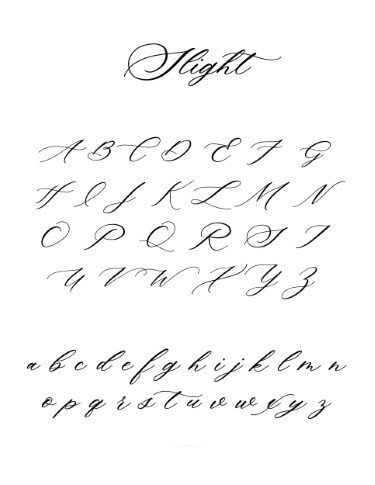 Slight
A B C D E F G
H I J K L M N
O P Q R S T
U V W X Y Z
a b c d e f g h i j k l m n
o p q r s t u v w x y z